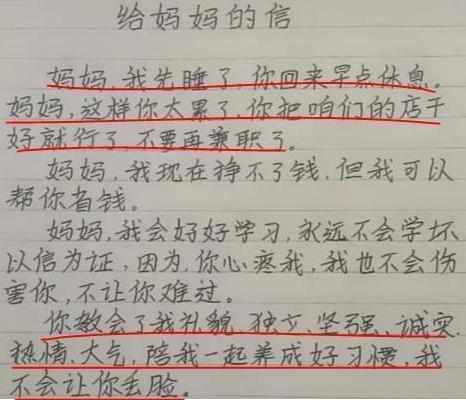 给妈妈的信
妈妈,我先睡了,你回来早点休息。
妈妈,这样你太累了,你把咱们的店干
好就行了,不要再兼职了。
妈妈,我现在挣不了钱,但我可以
帮你省钱。
妈妈,我会好好学习,永远不会学坏
以信为证,因为,你心疼我,我也不会伤
害你,不让你难过。
你教会了我礼貌、独立、坚强、诚实、
热情、大气,陪我一起养成好习惯,我
不会让你丢脸。